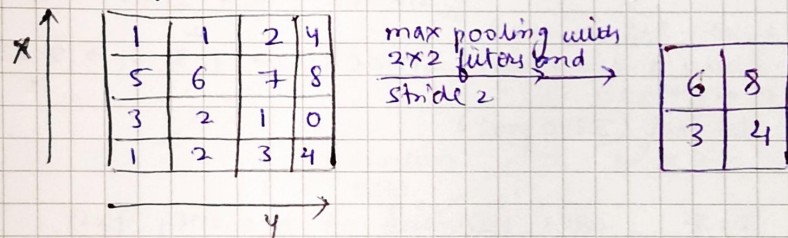 x
1 1 2 4
5 6 7 8
3 2 1 0
1 2 3 4
y
max pooling with
2x2 filters and
stride 2
6 8
3 4